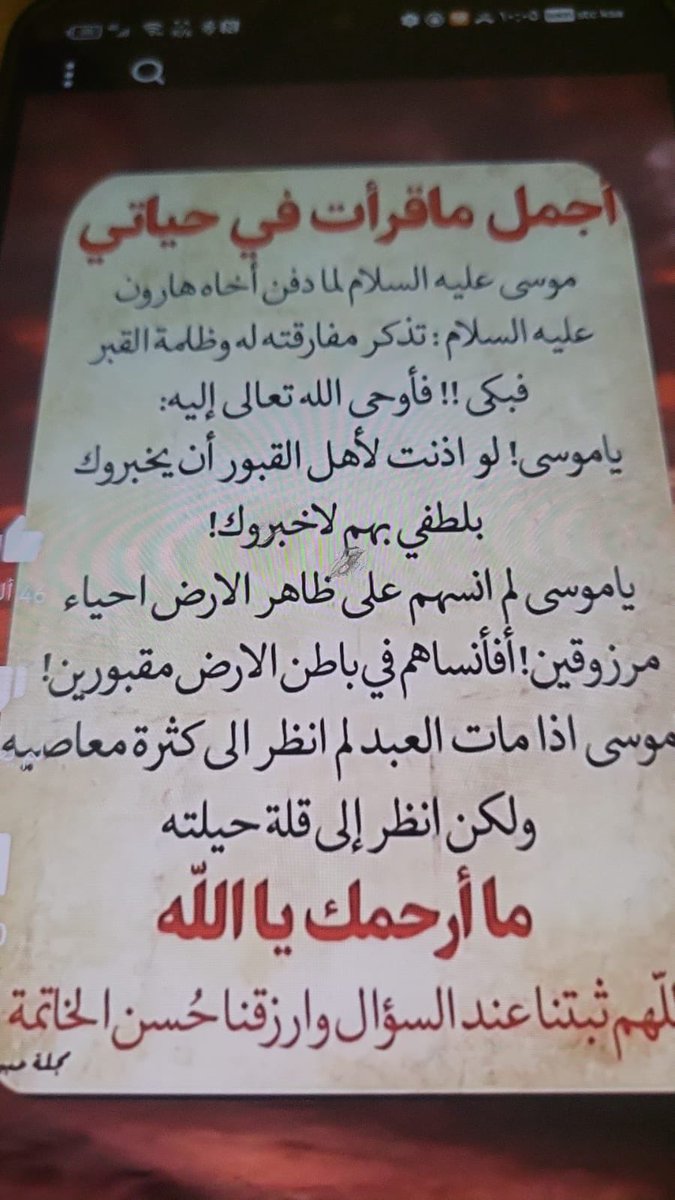 أجمل ماقرأت في حياتي
موسى عليه السلام لما دفن أخاه هارون
عليه السلام : تذكر مفارقته له وظلمة القبر
فبكى !! فأوحى الله تعالى إليه:
ياموسى! لو اذنت لأهل القبور أن يخبروك
بلطفي بهم لاخبروك!
ياموسى لم انسهم على ظاهر الارض احياء
مرزوقين! أفأنساهم في باطن الارض مقبورين!
موسى اذا مات العبد لم انظر الى كثرة معاصيه
ولكن انظر إلى قلة حيلته
ما أرحمك يا اللّه
للّهم ثبتنا عند السؤال وارزقنا حُسن الخاتمة
مجلة